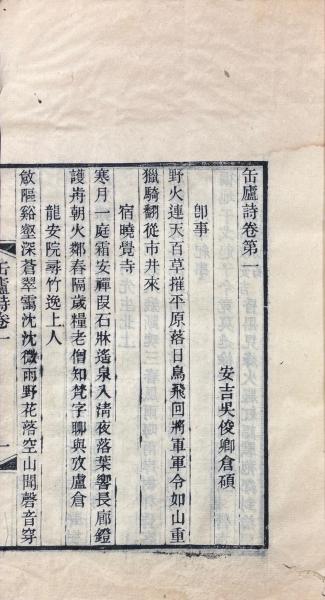 缶廬詩卷第一
安吉吳俊卿倉碩
卽事
野火連天百草摧平原落日鳥飛回將軍軍令如山重
獵騎翻從市井來
宿曉覺寺
寒月一庭霜安禪叚石牀遙泉入清夜落葉響長廊鐙
護歬朝火鄰舂隔歲糧老僧知梵字聊與攷盧倉
龍安院尋竹逸上人
敧隁谿壑深蒼翠靄沈沈微雨野花落空山聞磬音穿
缶廬詩卷一
一